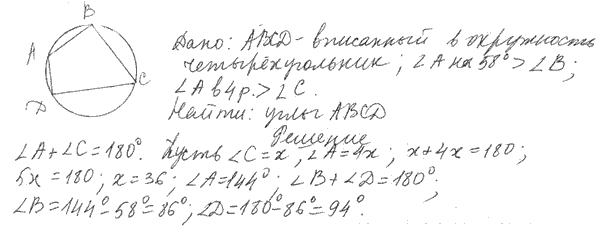 B
A
C
D
Дано: ABCD - вписанный в окружность
четырёхугольник; ∠A на 58° > ∠B;
∠A в 4р. > ∠C.
Найти: углы ABCD
Решение
∠A + ∠C = 180°. Пусть ∠C = x, ∠A = 4x; x + 4x = 180;
5x = 180; x = 36°; ∠A = 144°; ∠B + ∠D = 180°;
∠B = 144° - 58° = 86°; ∠D = 180° - 86° = 94°.